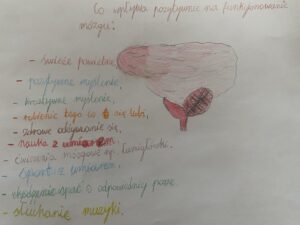 Co wpływa pozytywnie na funkcjonowanie
mózgu:
- świeże powietrze,
- pozytywne myślenie,
- kreatywne myślenie,
- robienie tego co się lubi,
- zdrowe odżywianie się,
- nauka z umiarem,
- ćwiczenia mózgowe np. łamigłówki.
- Sport z umiarem,
- chodzenie spać o odpowiedniej porze.
- słuchanie muzyki.